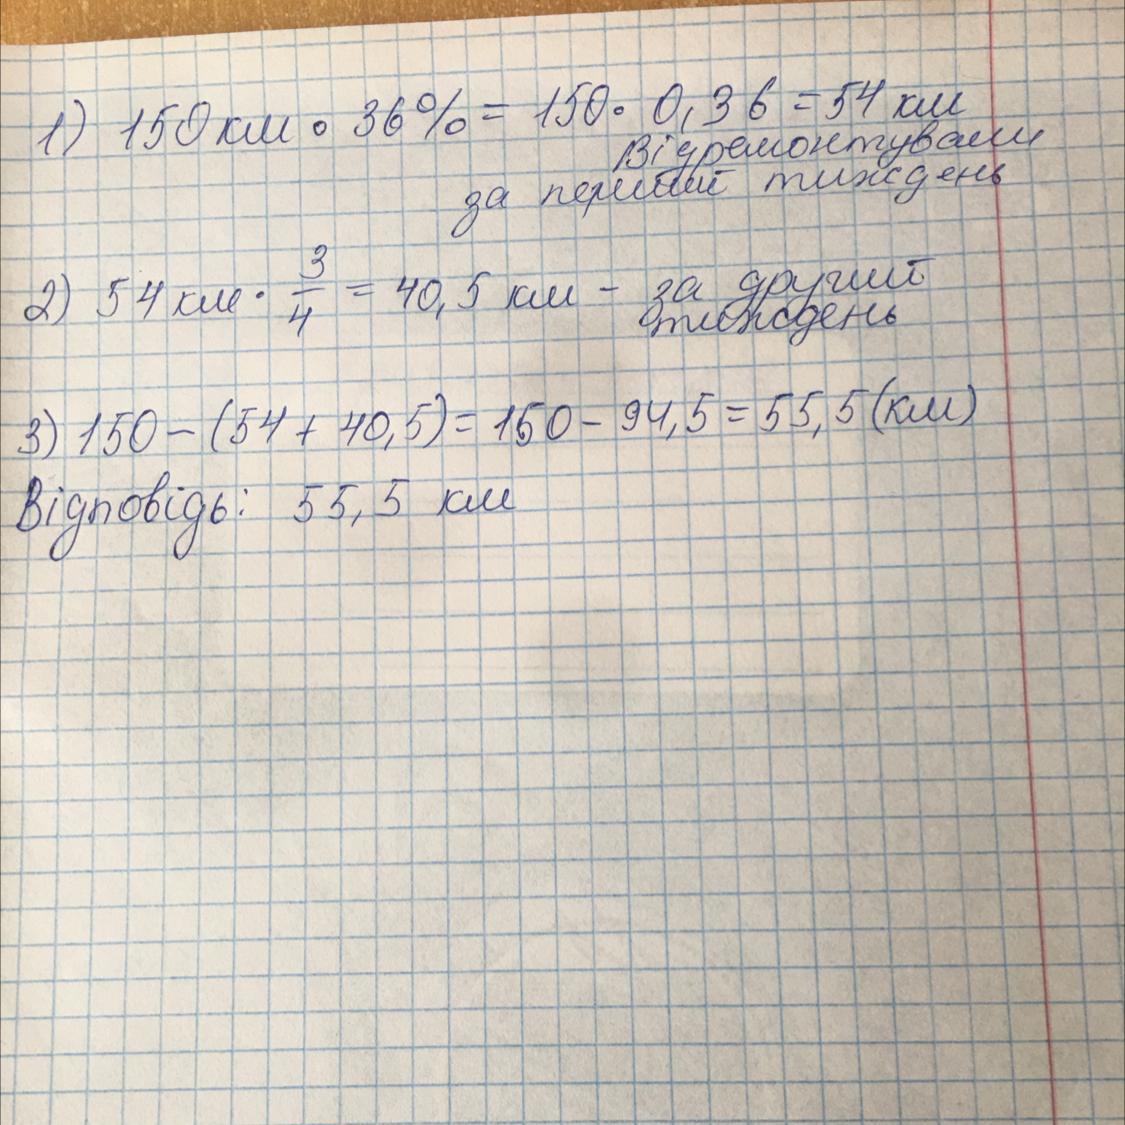 1) 150 км • 36% = 150 • 0,36 = 54 км
Відремонтували
за перший тиждень
2) 54 км • 3/4 = 40,5 км - за другий
тиждень
3) 150 - (54 + 40,5) = 150 - 94,5 = 55,5 (км)
Відповідь: 55,5 км